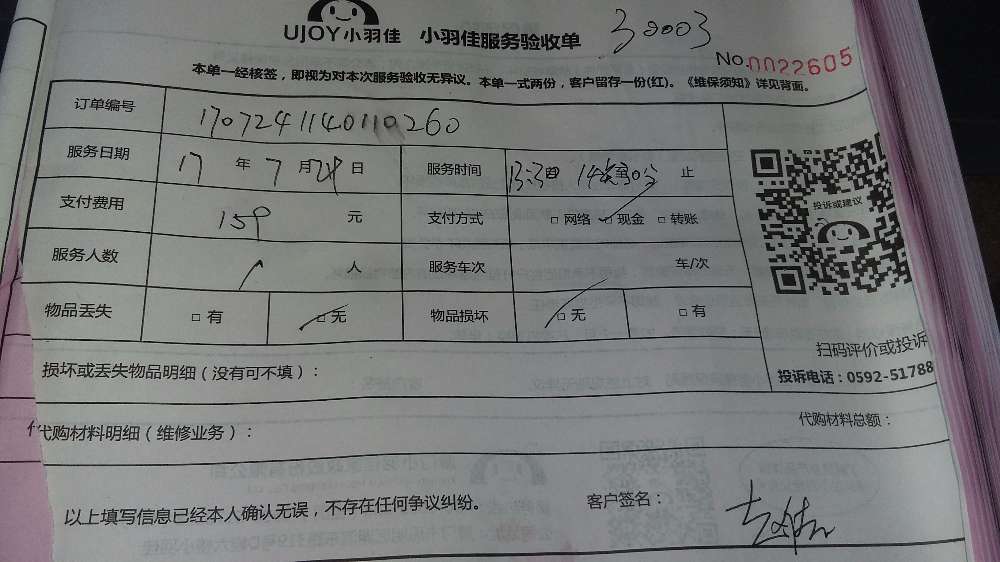 UJOY小羽佳 小羽佳服务验收单 30003
No.0022605
本单一经核签，即视为对本次服务验收无异议。本单一式两份，客户留存一份(红)。《维保须知》详见背面。
订单编号 1707241140110260
服务日期 17 年 7 月 24 日 服务时间 止
支付费用 159 元 支付方式 □网络 □现金 □转账
投诉或建议
服务人数 1 人 服务车次 车/次
物品丢失 □有 □无 物品损坏 □无 □有
扫码评价或投诉
损坏或丢失物品明细（没有可不填）：
投诉电话：0592-51788
代购材料明细（维修业务）： 代购材料总额：
以上填写信息已经本人确认无误，不存在任何争议纠纷。 客户签名：